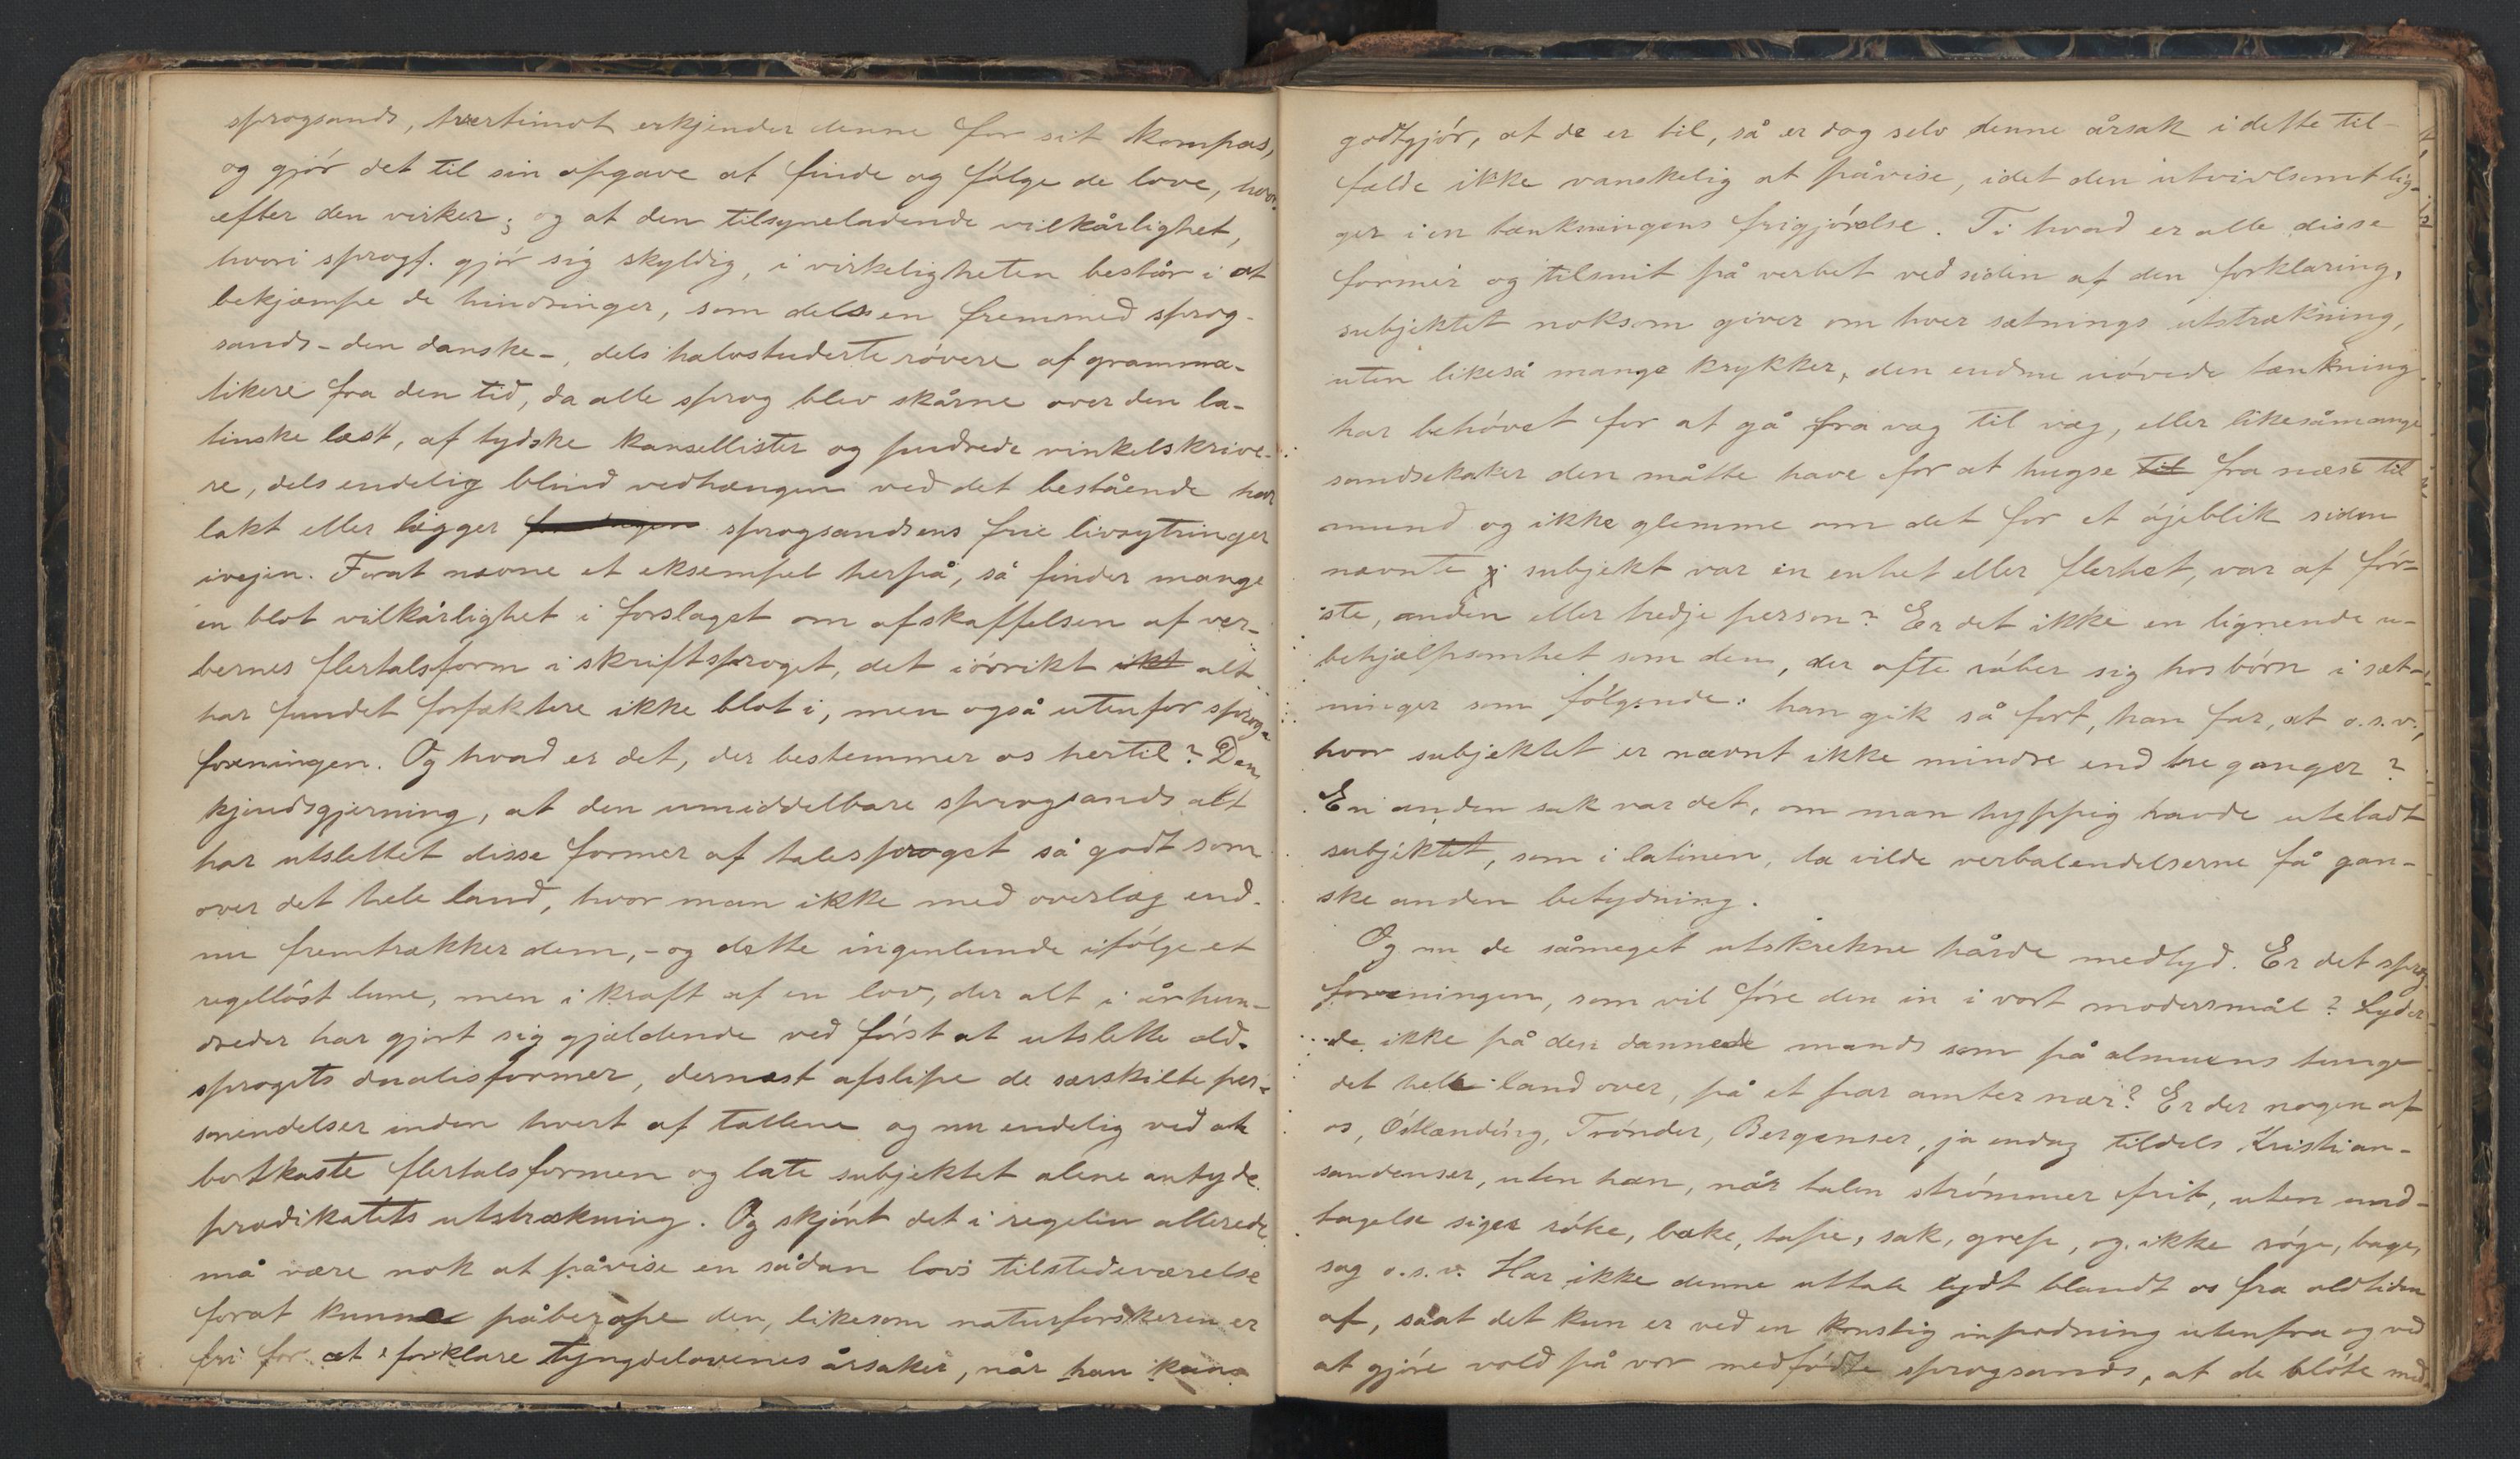 sprogsands, tvertimot erkjender denne for sit kompas,
og gjór det til sin opgave at finde og fólge de love, hvor-
efter den virker; og at den tilsyneladende vilkårlighet,
hvori sprogf. gjór sig skyldig, i virkeligheten består i at
bekjæmpe de hindringer, som dels en fremmed sprog-
sands – den danske –, dels halvstuderte róvere af gramma-
tikere fra den tid, da alle sprog blev skårne over den la-
tinske læst, af tydske kansellister og pudrede vinkelskrive-
re, dels endelig blind vedhængen ved det bestående har
lakt eller lægger sprogsandsens frie livsytringer
ivejen. Forat nævne et eksempel herpå, så finder mange
en blot vilkårlighet i forslaget om afskaffelsen af ver-
bernes flertalsform i skriftsproget, det ióvrikt ikt alt
har fundet forfæktere ikke blot i, men også utenfor sprog-
foreningen. Og hvad er det, der bestemmer os hertil? Den
kjendsgjerning, at den umiddelbare sprogsands alt
har utslettet disse former af talesproget så godt som
over det hele land, hvor man ikke med overlæg end-
nu fremtrækker dem, – og dette ingenlunde ifólge et
regellóst lune, men i kraft af en lov, der alt i århun-
dreder har gjort sig gjældende ved fórst at utslette old-
sprogets dualisformer, dernæst afslipe de særskilte per-
sonendelser inden hvert af tallene og nu endelig ved at
bortkaste flertalsformen og late subjektet alene antyde
prædikatets utstrækning. Og skjónt det i regelen allerede
må være nok at påvise en sådan lovs tilstedeværelse
forat kunne påberope den, likesom naturforskeren er
fri for at forklare tyngdelovenes årsaker, når han kun
godtgjór, at de er til, så er dog selv denne årsak i dette til-
fælde ikke vanskelig at påvise, idet den utvivlsomt lig-
ger i en tænkningens frigjórelse. Ti hvad er alle disse
former og tilsnit på verbet ved siden af den forklaring,
subjektet noksom giver om hver sætnings utstrækning,
uten likeså mange krykker, den endnu uóvede tænkning
har behóvet for at gå fra væg til væg, eller likesåmange
sandsekaker den måtte have for at hugse til fra næse til
mund og ikke glemme om det for et ójeblik siden
nævnte subjekt var en enhet eller flerhet, var af fór-
ste, anden eller tredje person? Er det ikke en lignende u-
behjælpsomhet som den, der ofte róber sig hos bórn i sæt-
ninger som fólgende: han gik så fort, han far, at o.s.v.,
hvor subjektet er nævnt ikke mindre end tre ganger?
En anden sak var det, om man hyppig havde uteladt
subjektet, som i latinen, da vilde verbalendelserne få gan-
ske anden betydning.
Og nu de såmeget utskrekne hårde medlyd. Er det sprog-
foreningen, som vil fóre den in i vort modersmål? Lyder
de ikke på den dannede mands som på almuens tunge
det hele land over, på et par amter nær? Er der nogen af
os, Óstlænding, Trónder, Bergenser, ja endog tildels Kristian-
sandenser, uten han, når talen strómmer frit, uten und-
tagelse siger róke, bake, tape, sak, grepe, og ikke róge, bage,
sag o.s.v. Har ikke denne uttale lydt blandt os fra oldtiden
af, såat det kun er ved en kunstig inpodning utenfra og ved
at gjóre vold på vor medfódte sprogsands, at de blóte med-